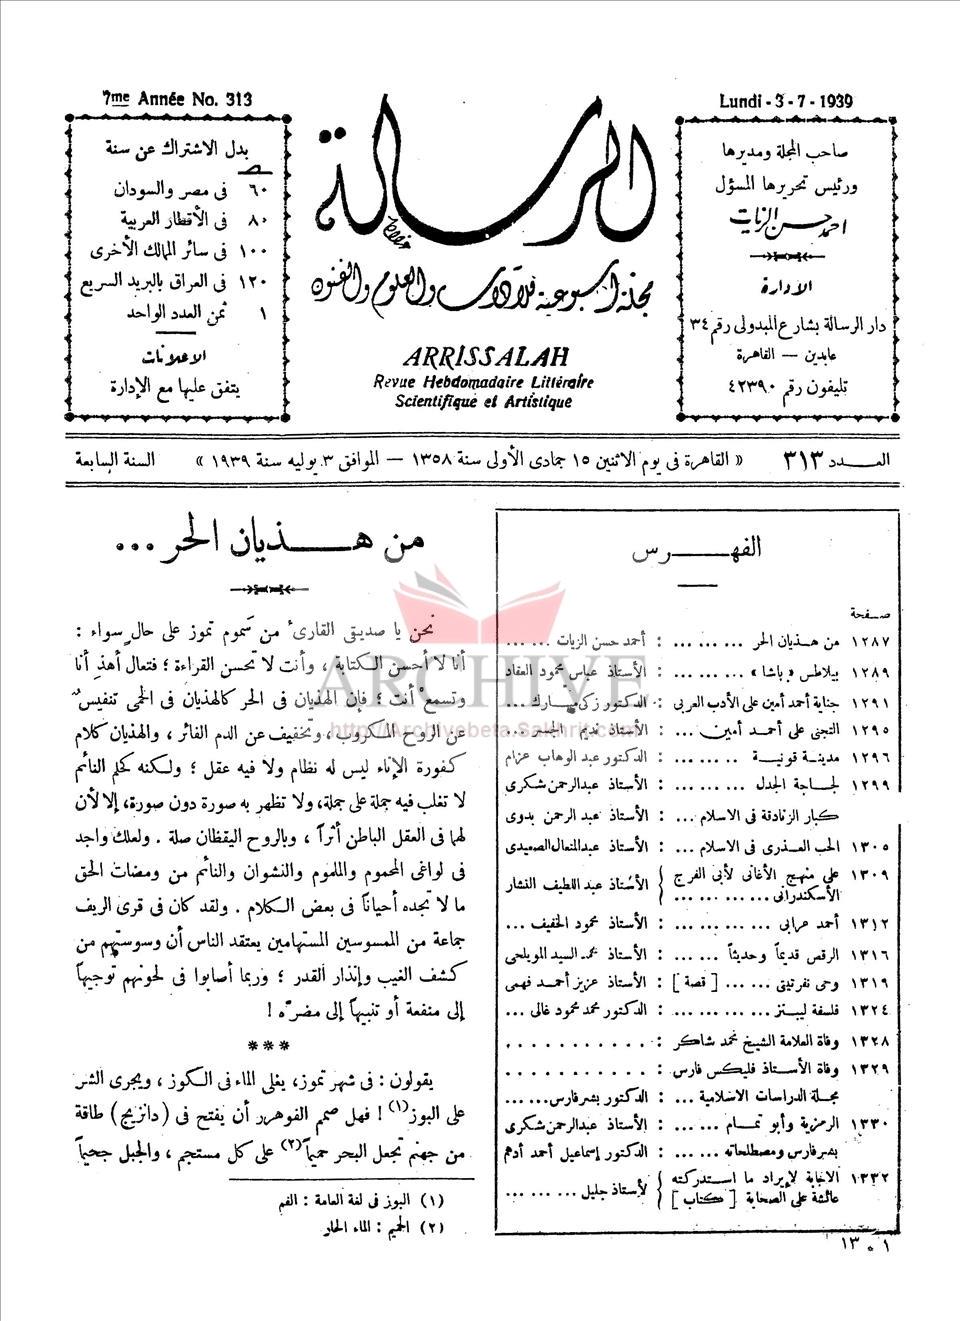 7me Année No. 313
Lundi - 3 - 7 - 1939
بدل الاشتراك عن سنة
٦٠ فى مصر والسودان
٨٠ فى الأقطار العربية
١٠٠ فى سائر الممالك الأخرى
١٢٠ فى العراق بالبريد السريع
١ ثمن العدد الواحد
الاعلانات
يتفق عليها مع الإدارة
الرسالة
مجلة أسبوعية للآداب والعلوم والفنون
ARRISSALAH
Revue Hebdomadaire Littéraire
Scientifique et Artistique
صاحب المجلة ومديرها
ورئيس تحريرها المسؤل
احمد حسن الزيات
الادارة
دار الرسالة بشارع المبدولى رقم ٣٤
عابدين — القاهرة
تليفون رقم ٤٢٣٩٠
العـدد ٣١٣ « القاهرة فى يوم الاثنين ١٥ جمادى الأولى سنة ١٣٥٨ — الموافق ٣ يوليه سنة ١٩٣٩ » السنة السابعة
الفهـرس
صفحة
١٢٨٧ من هذيان الحر ... ... ... : أحمد حسن الزيات ... ...
١٢٨٩ بيلاطس « باشا » ... ... ... : الأستاذ عباس محمود العقاد
١٢٩١ جناية أحمد أمين على الأدب العربى : الدكتور زكى مبارك ...
١٢٩٥ التجنى على أحمد أمين ... ... : الأستاذ نديم الجسر ...
١٢٩٦ مدينة قونية ... ... ... : الدكتور عبد الوهاب عزام
١٢٩٩ لجاجة الجدل ... ... ... : الأستاذ عبدالرحمن شكرى
كبار الزنادقة فى الاسلام ... : الأستاذ عبد الرحمن بدوى
١٣٠٥ الحب العذرى فى الاسلام ... : الأستاذ عبدالمتعال الصعيدى
١٣٠٩ على منهج الأغانى لأبى الفرج الأسكندرانى ... ... ... ... } الأستاذ عبد اللطيف النشار
١٣١٢ أحمد عرابى ... ... ... ... : الأستاذ محمود الخفيف ...
١٣١٦ الرقص قديماً وحديثاً ... ... : الأستاذ محمد السيد المويلحى
١٣١٩ وحى نفرتيتى ... ... [ قصة ] : الأستاذ عزيز أحمد فهمى
١٣٢٤ فلسفة ليبنتز ... ... ... ... : الدكتور محمد محمود غالى ...
١٣٢٨ وفاة العلامة الشيخ محمد شاكر : . . . . . . . . . .
١٣٢٩ وفاة الأستاذ فليكس فارس : . . . . . . . . . .
مجلة الدراسات الاسلامية ... : الدكتور بشر فارس ... ...
١٣٣٠ الرمزية وأبو تمام ... ... : الأستاذ عبدالرحمن شكرى
بشر فارس ومصطلحاته ... ... : الدكتور إسماعيل أحمد أدهم
١٣٣٢ الاجابة لإيراد ما استدركته عائشة على الصحابة [ كتاب ] } لأستاذ جليل ... ... ...
١٣٠١
من هـذيان الحر ...
نحن يا صديقى القارىء من سَموم تموز على حالٍ سواء :
أنا لا أحسن الكتابة ، وأنت لا تحسن القراءة ؛ فتعال أهذِ أنا
وتسمعْ أنت ؛ فإن الهذيان فى الحر كالهذيان فى الحمى تنفيسٌ
عن الروح المكروب ، وتخفيف عن الدم الفائر ، والهذيان كلام
كفورة الإناء ليس له نظام ولا فيه عقل ؛ ولكنه كحلم النائم
لا تغلب فيه جملة على جملة، ولا تظهر به صورة دون صورة، إلا لأن
لهما فى العقل الباطن أثراً ، وبالروح اليقظان صلة . ولعلك واجد
فى لواغى المحموم والملموم والنشوان والنائم من ومضات الحق
ما لا تجده أحياناً فى بعض الكلام . ولقد كان فى قرى الريف
جماعة من الممسوسين المستهامين يعتقد الناس أن وسوستهم من
كشف الغيب وإنذار القدر ؛ وربما أصابوا فى لحونهم توجيهاً
إلى منفعة أو تنبيهاً إلى مضرّة !
***
يقولون : فى شهر تموز، يغلى الماء فى الكوز ، ويجرى الشر
على البوز(١) ! فهل صمم الفوهرر أن يفتح فى ( دانزيج ) طاقة
من جهنم تجعل البحر حميماً(٢) على كل مستجم ، والجبل جحيماً
(١) البوز فى لغة العامة : الفم
(٢) الحميم : الماء الحار
ARCHIVE
http://Archivebeta.Sakhrit.com